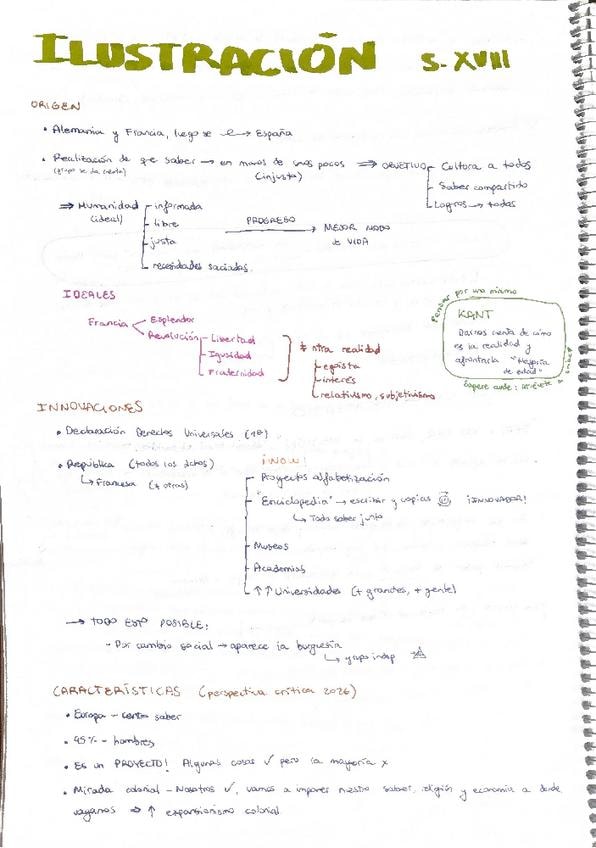 ILUSTRACIÓN S. XVIII
ORIGEN
• Alemania y Francia, luego se → España
• Realización de que saber → en manos de unos pocos ⇒ OBJETIVO - Cultura a todos
(grupo se da cuenta) (injusta) - Saber compartido
- Logros → todos
⇒ Humanidad - informada
(ideal) - libre PROGRESO → MEJOR MODO
- justa de VIDA
- necesidades saciadas
IDEALES
Francia < Esplendor
Revolución - Libertad
- Igualdad
- Fraternidad
≠ ntra realidad
- egoísta
- interés
- relativismo, subjetivismo
Pensar por uno mismo
KANT
Darnos cuenta de cómo
es la realidad y
afrontarla "Mayoría
de edad"
Sapere aude: atrévete a saber
INNOVACIONES
• Declaración Derechos Universales (1ª)
• República (todos los dchos)
↳ Francesa (+ otras)
¡WOW!
- Proyectos alfabetización
- "Enciclopedia" → escribir y copias ¡INNOVADOR!
↳ Todo saber junto
- Museos
- Academias
- ↑↑ Universidades (+ grandes, + gente)
→ TODO ESTO POSIBLE:
- Por cambio social → aparece la burguesía
↳ grupo indep
CARACTERÍSTICAS (perspectiva crítica 2026)
• Europa - centro saber
• 95% - hombres
• Es un PROYECTO! Algunas cosas ✓ pero la mayoría x
• Mirada colonial - Nosotros ✓, vamos a imponer nuestro saber, religión y economía a donde
vayamos ⇒ ↑ expansionismo colonial